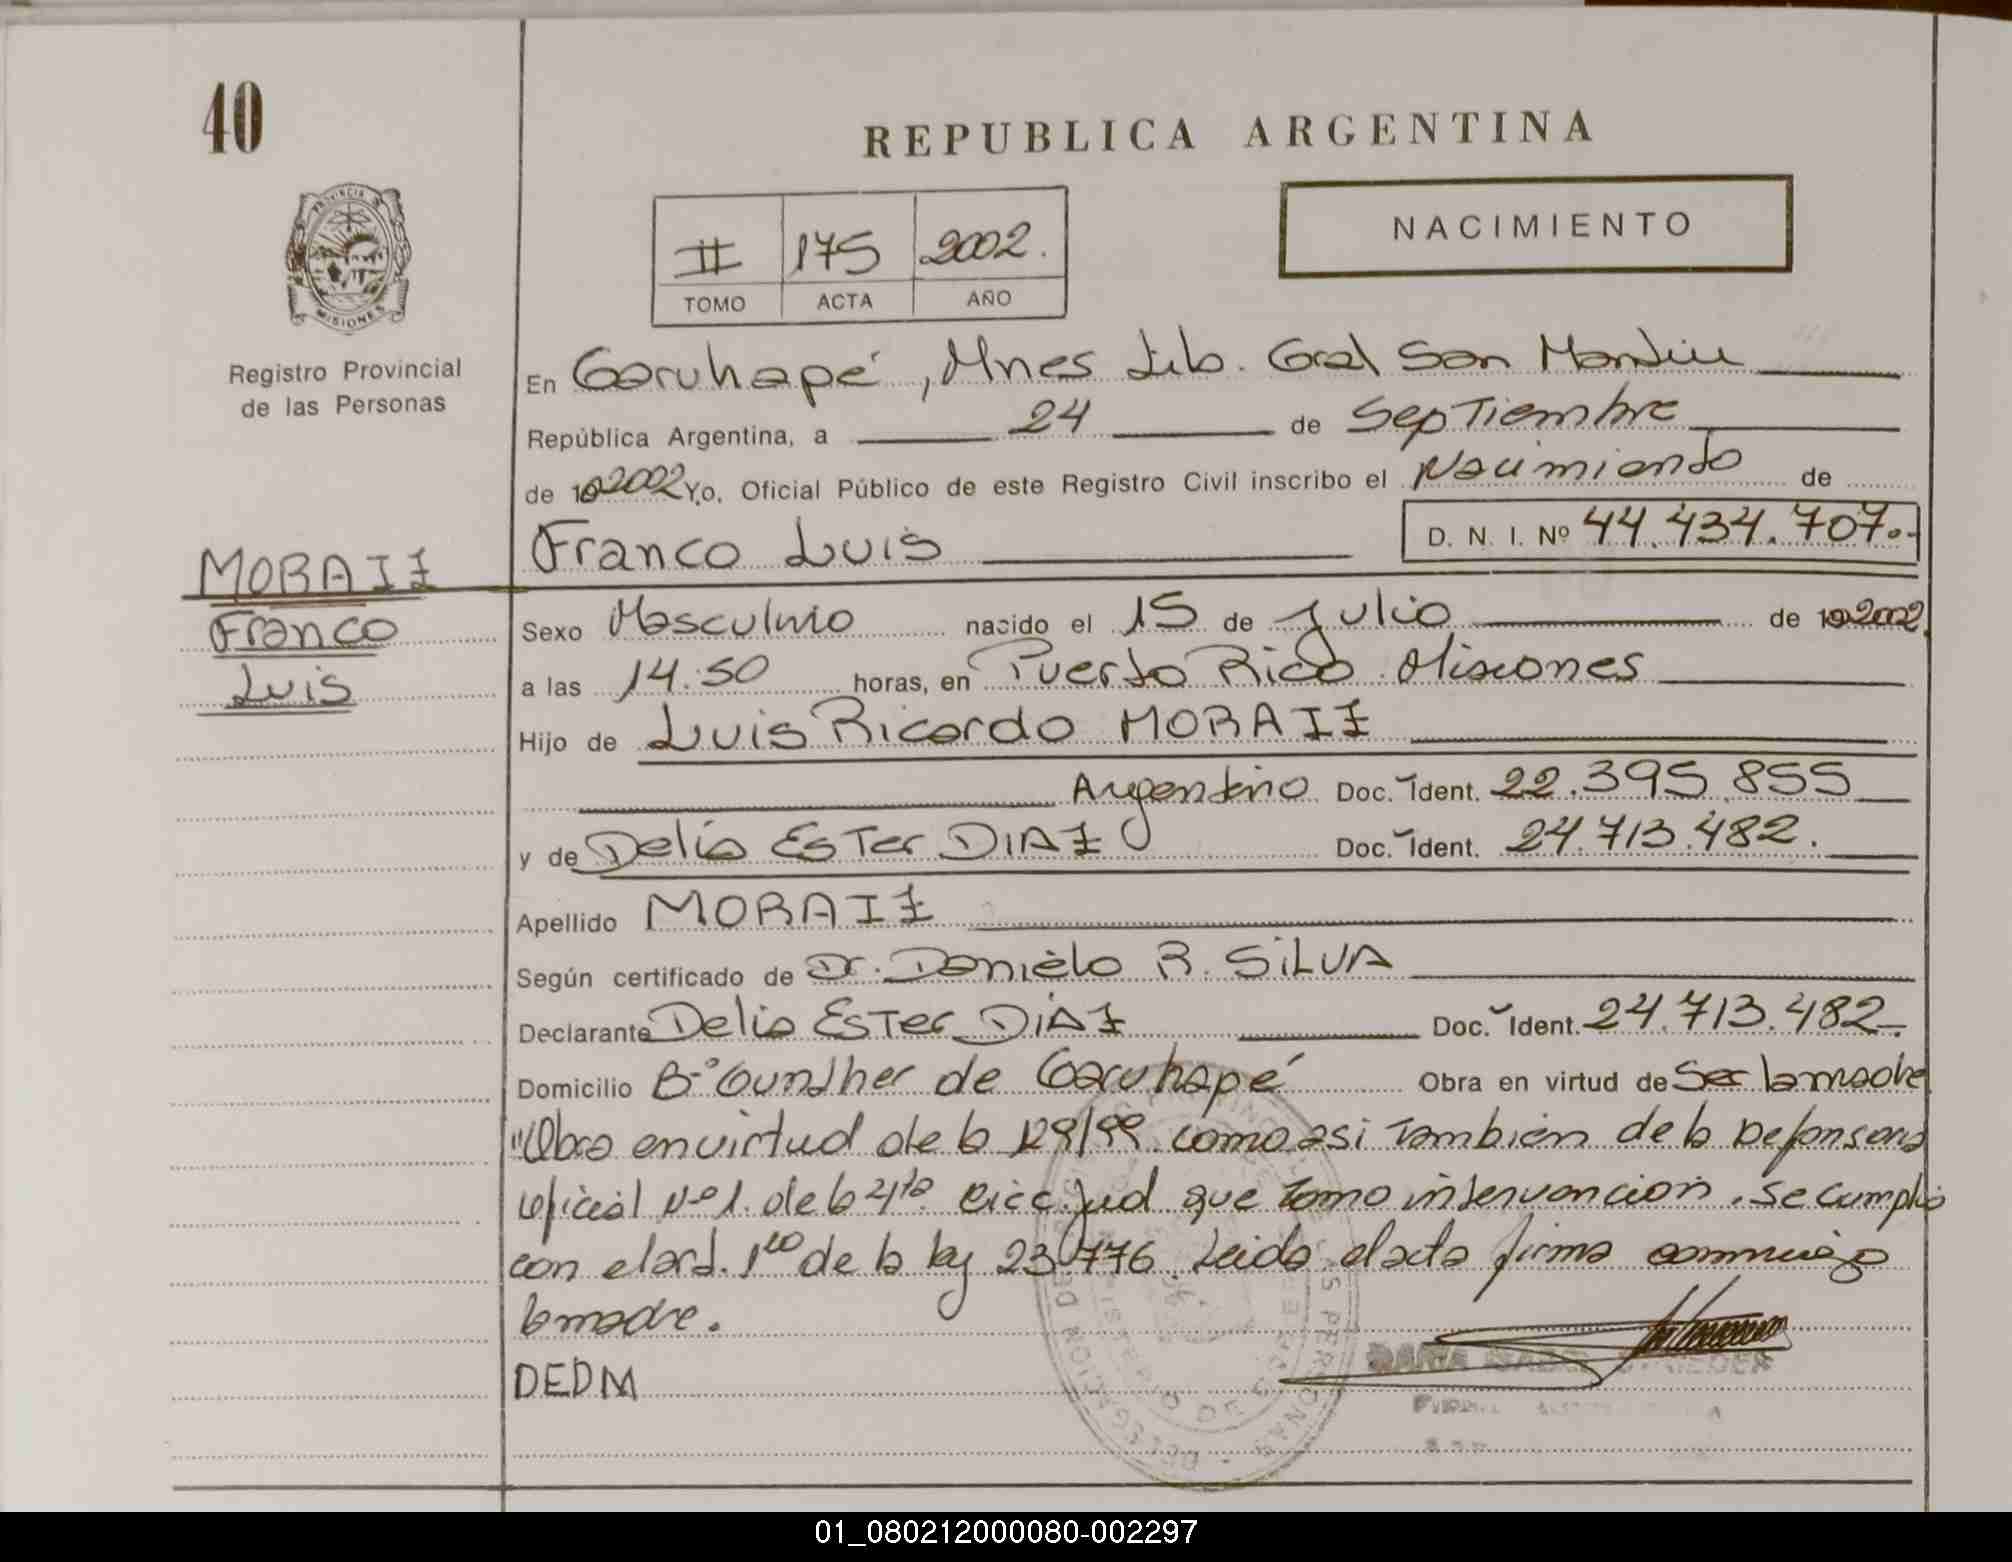 40
REPUBLICA ARGENTINA
PROVINCIA DE
MISIONES
NACIMIENTO
II 175 2002.
TOMO ACTA AÑO
Registro Provincial
de las Personas
En Garuhapé, Mnes Lib. Gral San Martin
República Argentina, a 24 de Septiembre
de 192002 Yo, Oficial Público de este Registro Civil inscribo el Nacimiento de
Franco Luis D. N. I. Nº 44.434.707.-
MORAIZ
Franco
Luis
Sexo Masculino nacido el 15 de Julio de 192002
a las 14:50 horas, en Puerto Rico Misiones
Hijo de Luis Ricardo MORAIZ
Argentino Doc. Ident. 22.395.855
y de Delia Ester DIAZ Doc. Ident. 24.713.482.
Apellido MORAIZ
Según certificado de Dr. Danielo R. SILVA
Declarante Delia Ester DIAZ Doc. Ident. 24.713.482.
Domicilio Bº Gunther de Garuhapé Obra en virtud de Ser la madre
"Obra en virtud de la 129/99 como asi Tambien de la Defensoria
oficial Nº 1. de la 4ta. Circ. Jud que tomo intervencion. Se cumplio
con el art. 1ro de la ley 23.776. Leida el acta firma conmigo
la madre.
DEDM
01_080212000080-002297